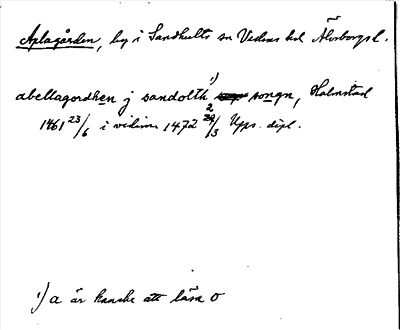 Aplagården, by i Sandhults sn Vedens hd Älvsborgs l.
abellagordhen j sandolth ¹⁾ songn, Halmstad
1461 23/6 i vidim. 1472 2/3 Ups. dipl.
¹⁾ a är kanske att läsa o